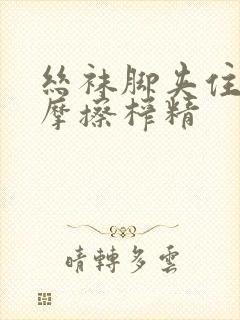 絲袜脚夹住
摩擦榨精
晴轉多雲